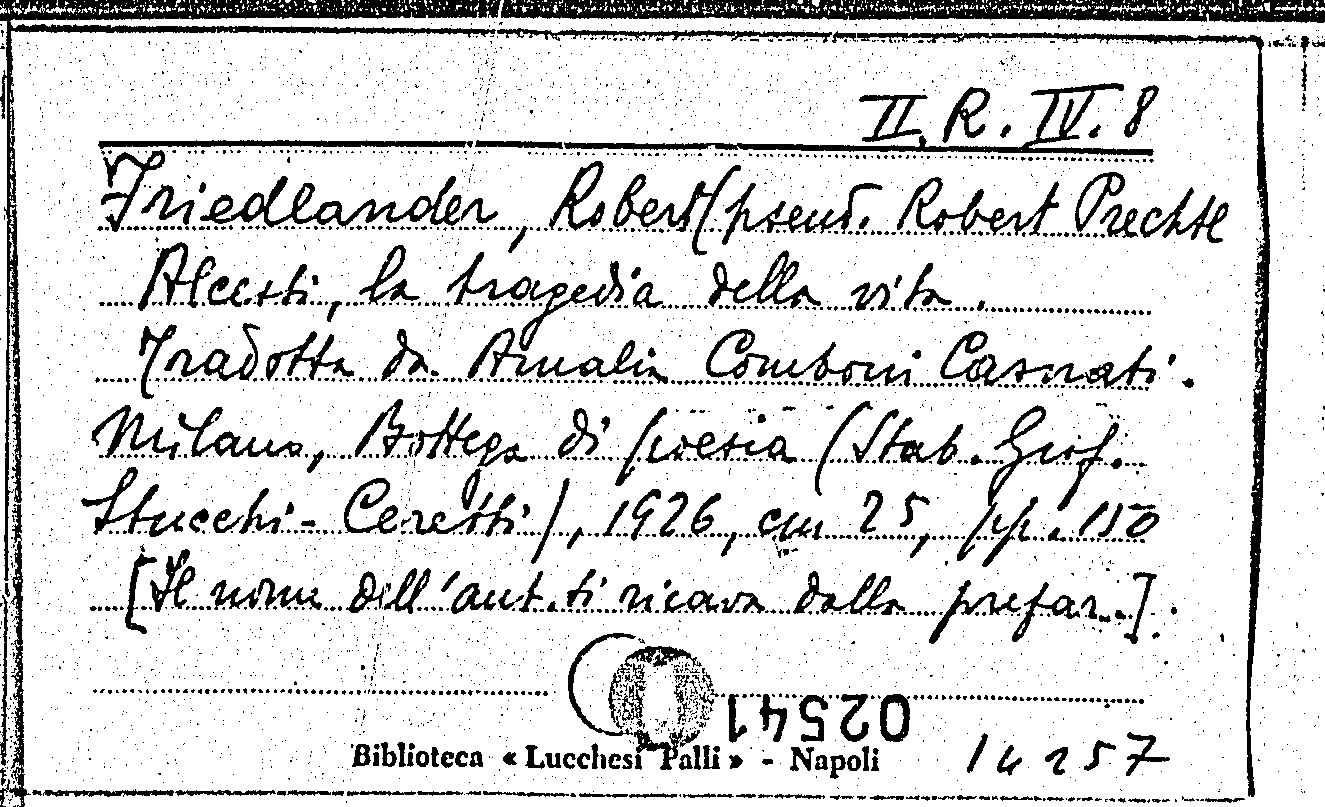 II. R. IV. 8
Friedlander, Robert (pseud. Robert Prechtl
Alcesti, la tragedia della vita.
Tradotta da Amalia Comboni Casnati.
Milano, Bottega di poesia (Stab. Graf.
Stucchi-Ceretti), 1926, cm 25, pp. 150
[Il nome dell'aut. si ricava dalla prefaz.].
02541
Biblioteca « Lucchesi Palli » - Napoli
14257